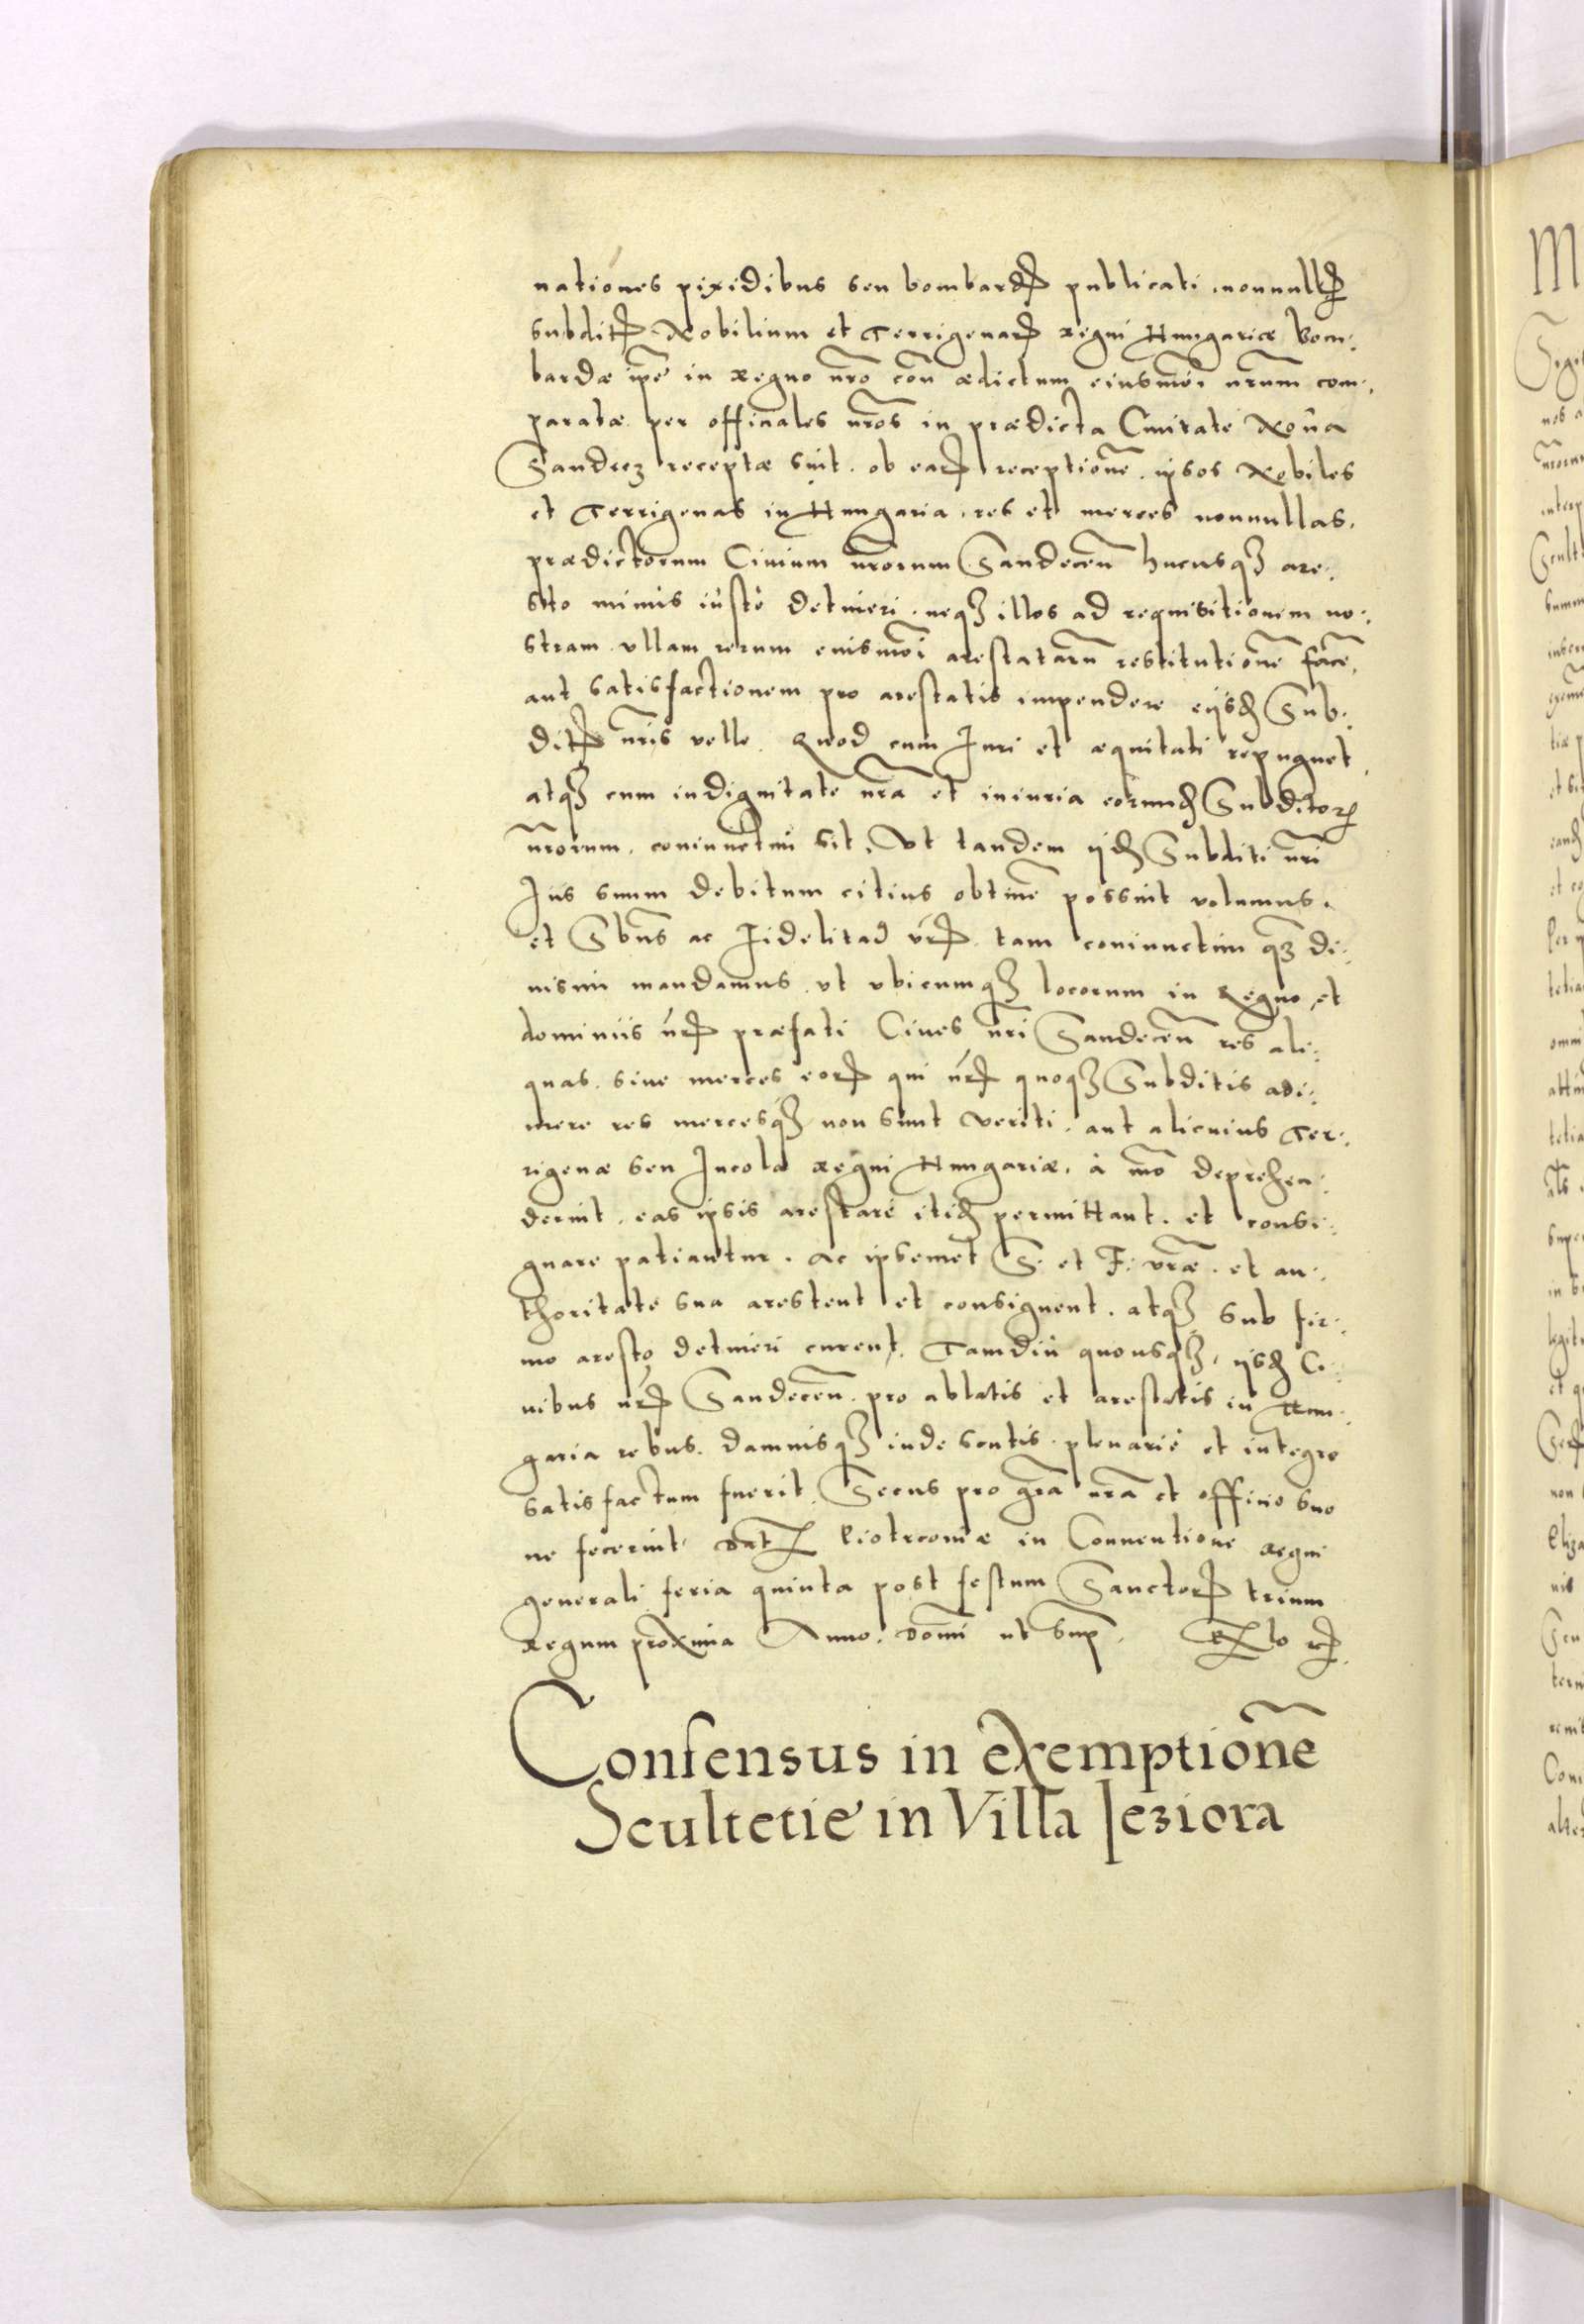 nationes pixidibus seu bombardꝭ publicati nonnullꝭ
subditꝭ Nobilium et Terrigenarꝭ Regni Hungariæ Bom:
bardæ ip̃e in Regno nr̃o con̄ ædictum eiusmōi nr̃um com:
paratæ per officiales nr̃os in prædicta Ciuitate Noua
Sandecz receptæ sint. ob earꝭ receptionē. ipsos Nobiles
et Terrigenas in Hungaria. res et merces nonnullas.
prædictorum Ciuium nr̃orum Sandeceñ hucusqꝫ are:
sto minus iustè detineri. neqꝫ illos ad requisitionem no:
stram vllam rerum eiusmōi arestatarū restitutionē facē,
aut satisfactionem pro arestatis impendere eijsdꝫ Sub:
ditꝭ nr̃is velle. Quod cum Juri et æquitati repugnet
atqꝫ cum indignitate nr̃a et iniuria eorundꝫ Subditorꝝ
nr̃orum. coniunctim sit. Vt tandem ijdꝫ Subditi nr̃i
Jus suum debitum citius obtinē possint volumus.
et Sbus̄ ac Fidelitad vr̃ꝭ. tam coniunctim qꝫ di:
uisim mandamus. vt vbicumqꝫ locorum in Regno et
dominiis nr̃ꝭ præfati Ciues nr̃i Sandeceñ res ali:
quas. siue merces eorꝭ qui nr̃ꝭ quoqꝫ Subditis adi:
mere res mercesqꝫ non sunt veriti. aut alicuius Ter:
rigenæ seu Incolæ Regni Hungariæ. à mō deprehen:
derint. eas ipsis arestare itidꝫ permittant. et consi:
gnare patiantur. Ac ipsemet S: et F: vr̃æ. et au:
thoritate sua arestent et consignent. atqꝫ sub fir:
mo aresto detineri curent. Tamdiu quousqꝫ, ijsdꝫ Ci:
uibus nr̃ꝭ Sandeceñ. pro ablatis et arestatis in Hun:
garia rebus. damnisqꝫ inde sentis. plenariè et integre
satisfactum fuerit. Secus pro gr̃a nr̃a et officio suo
ne fecerint. Datꝭ Piotrcouiæ in Conuentione Regni
generali feria quinta post festum Sanctorꝭ trium
Regum proxima Anno. Domi ut sup̄.
Consensus in exemptionē
Scultetie in Villa Jeziora